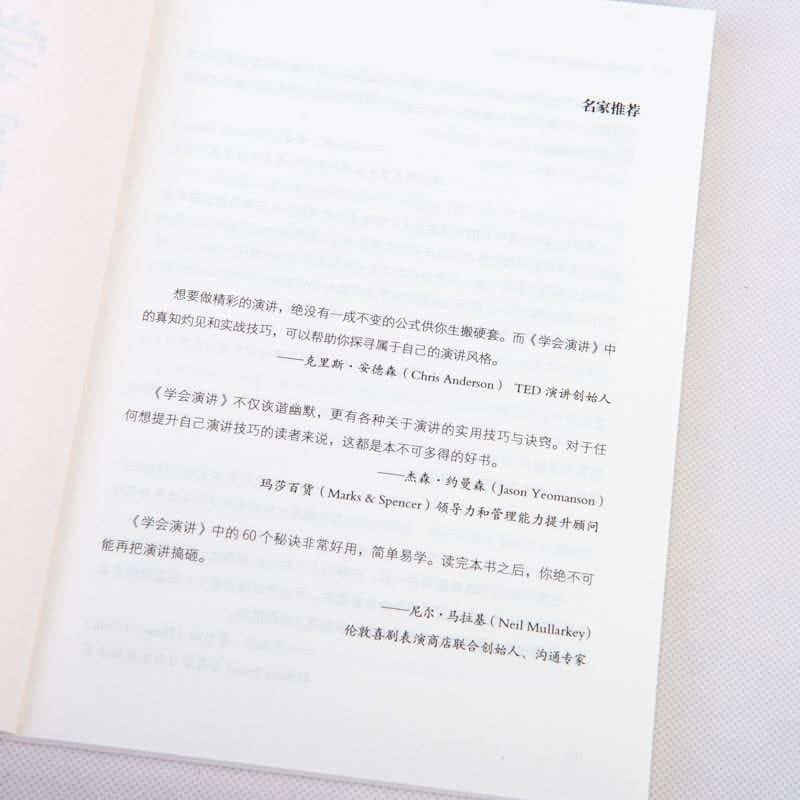 名家推荐
想要做精彩的演讲，绝没有一成不变的公式供你生搬硬套。而《学会演讲》中
的真知灼见和实战技巧，可以帮助你探寻属于自己的演讲风格。
——克里斯·安德森（Chris Anderson） TED 演讲创始人
《学会演讲》不仅诙谐幽默，更有各种关于演讲的实用技巧与诀窍。对于任
何想提升自己演讲技巧的读者来说，这都是本不可多得的好书。
——杰森·约曼森（Jason Yeomanson）
玛莎百货（Marks & Spencer）领导力和管理能力提升顾问
《学会演讲》中的 60 个秘诀非常好用，简单易学。读完本书之后，你绝不可
能再把演讲搞砸。
——尼尔·马拉基（Neil Mullarkey）
伦敦喜剧表演商店联合创始人、沟通专家